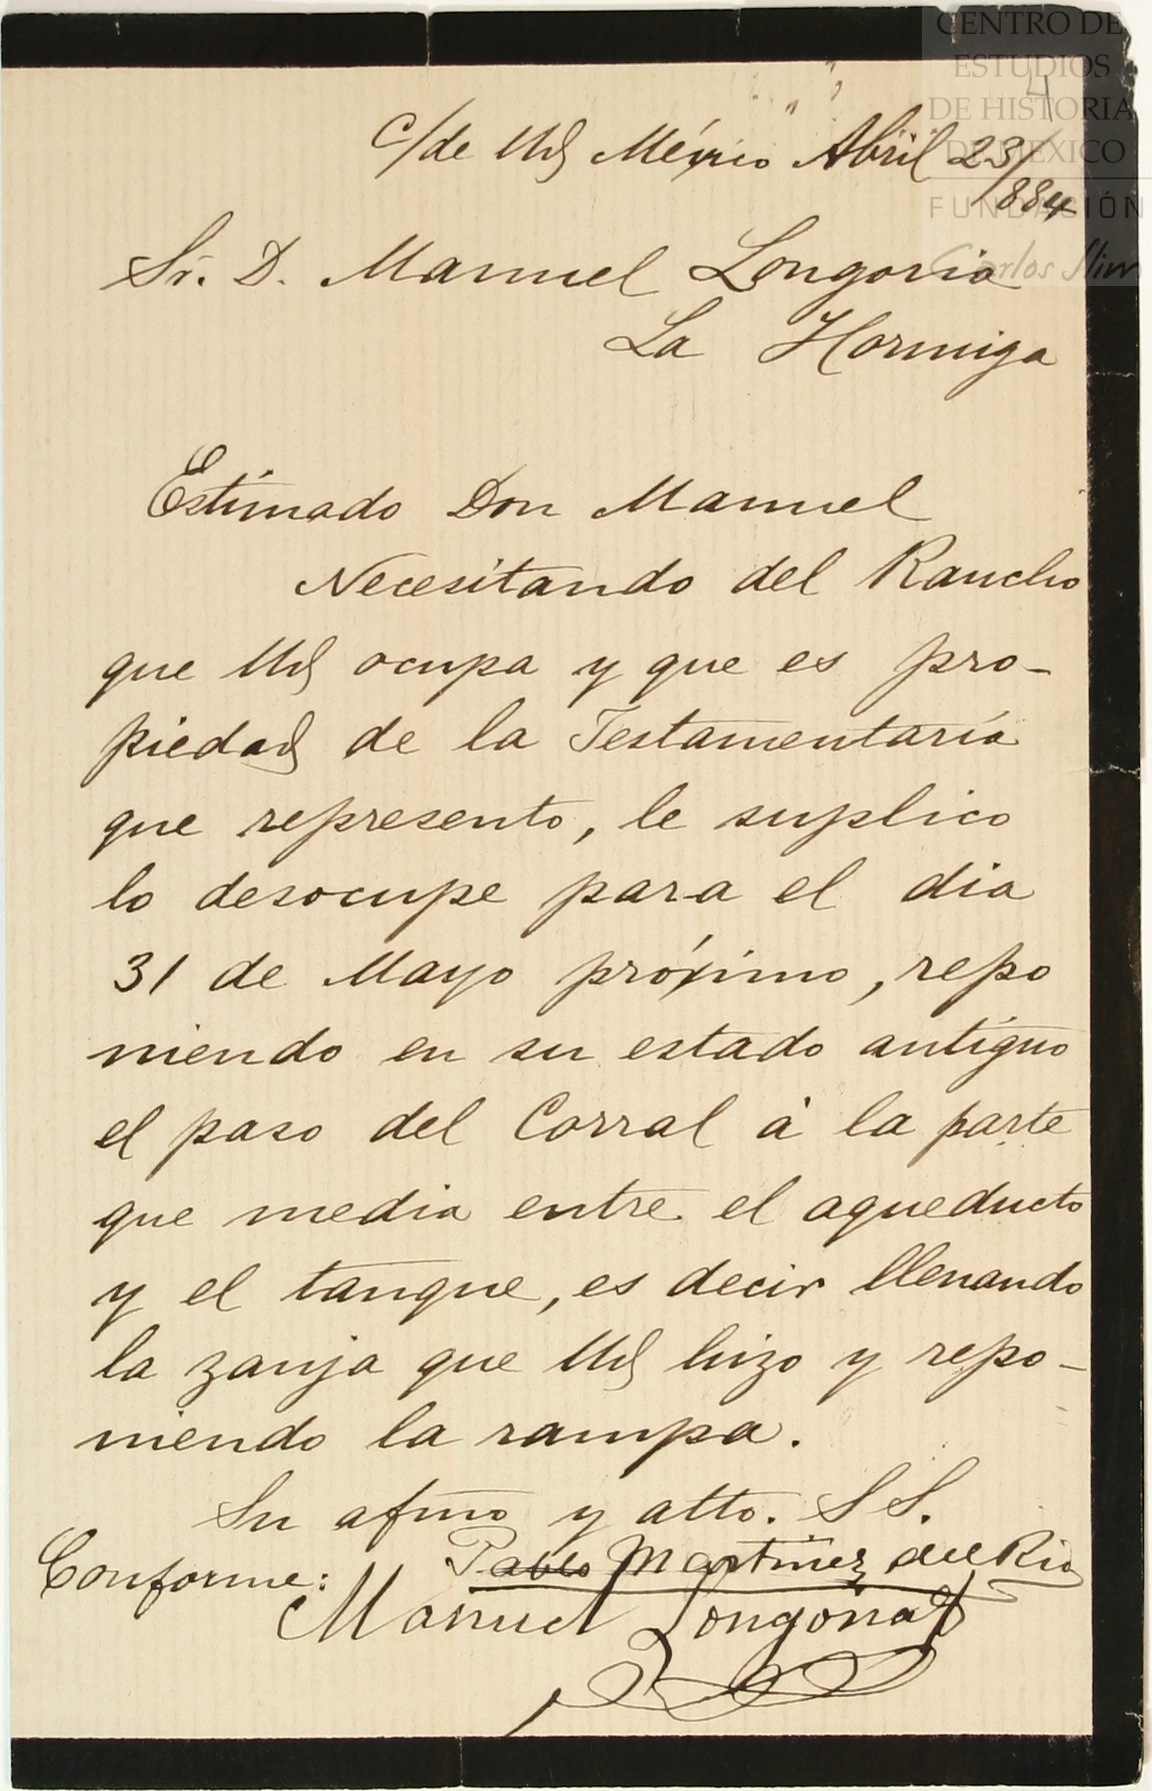 CENTRO DE
ESTUDIOS
DE HISTORIA
DE MEXICO
FUNDACIÓN
Carlos Slim
4
C/de Ud México Abril 23/884
Sr. D. Manuel Longoria
La Hormiga
Estimado Don Manuel
Necesitando del Rancho
que Ud ocupa y que es pro-
piedad de la Testamentaría
que represento, le suplico
lo desocupe para el dia
31 de Mayo próximo, repo
niendo en su estado antiguo
el paso del Corral á la parte
que media entre el aqueducto
y el tanque, es decir llenando
la zanja que Ud hizo y repo-
niendo la rampa.
Su afmo y atto. S S.
Pablo Martinez del Rio
Conforme:
Manuel Longoria